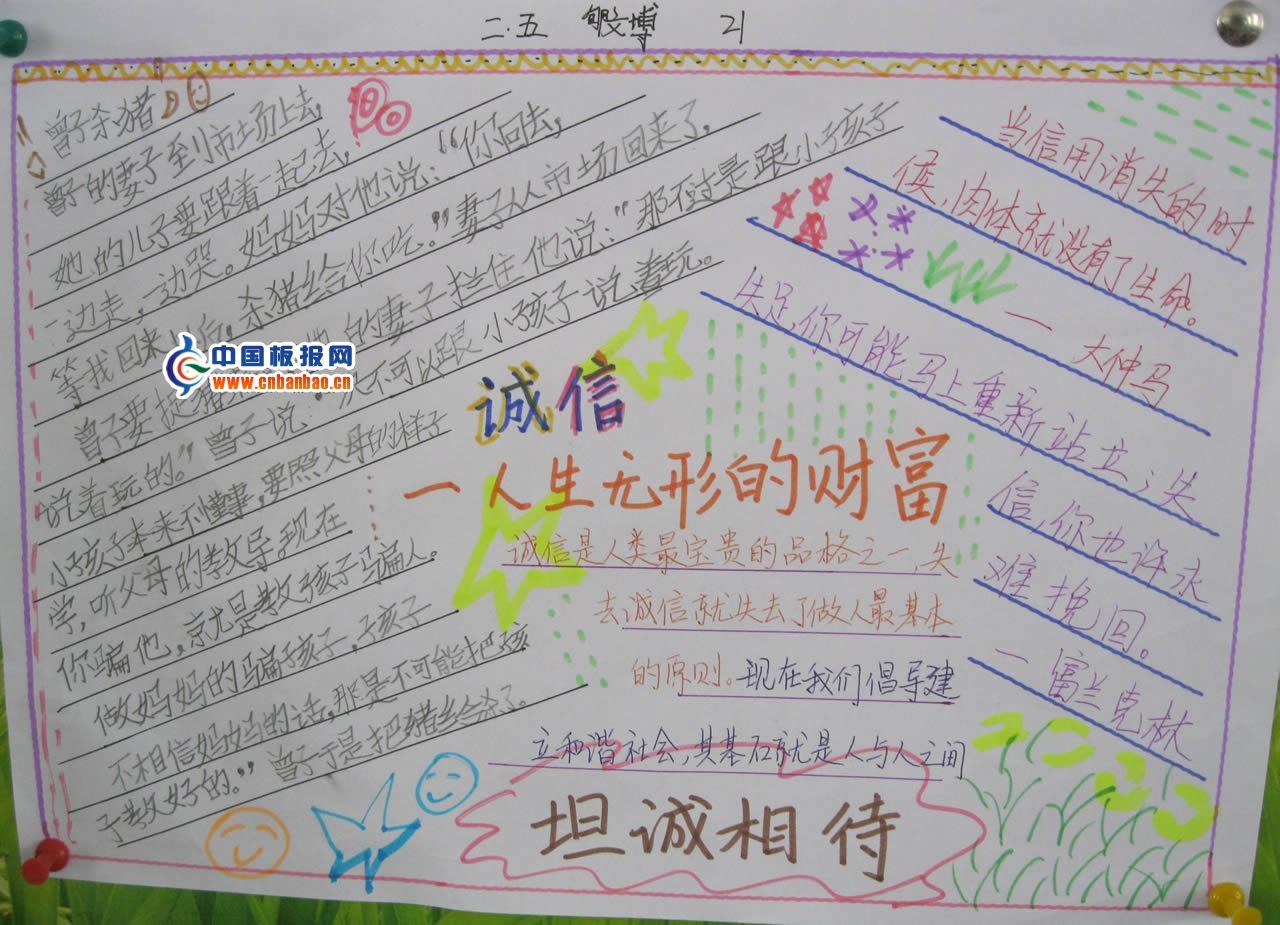 二.五 博 21
曾子杀猪
曾子的妻子到市场上去,
她的儿子要跟着一起去,
一边走,一边哭。妈妈对他说:“你回去,
等我回来 后,杀猪给你吃。”妻子从市场回来了,
曾子要捉猪 的妻子拦住他说:“那不过是跟小孩子
说着玩的。”曾子说: 不可以跟小孩子说着玩。
小孩子本来不懂事,要照父母的样子
学,听父母的教导,现在
你骗他,就是教孩子骗人。
做妈妈的骗孩子,孩子
不相信妈妈的话,那是不可能把孩
子教好的。”曾子于是把猪给杀了。
诚信
一人生无形的财富
诚信是人类最宝贵的品格之一,失
去诚信就失去了做人最基本
的原则。现在我们倡导建
立和谐社会,其基石就是人与人之间
坦诚相待
当信用消失的时
候,肉体就没有了生命。
一 大仲马
失足,你可能马上重新站立;失
信,你也许永
难挽回。
一富兰克林
中国板报网
www.cnbanbao.cn